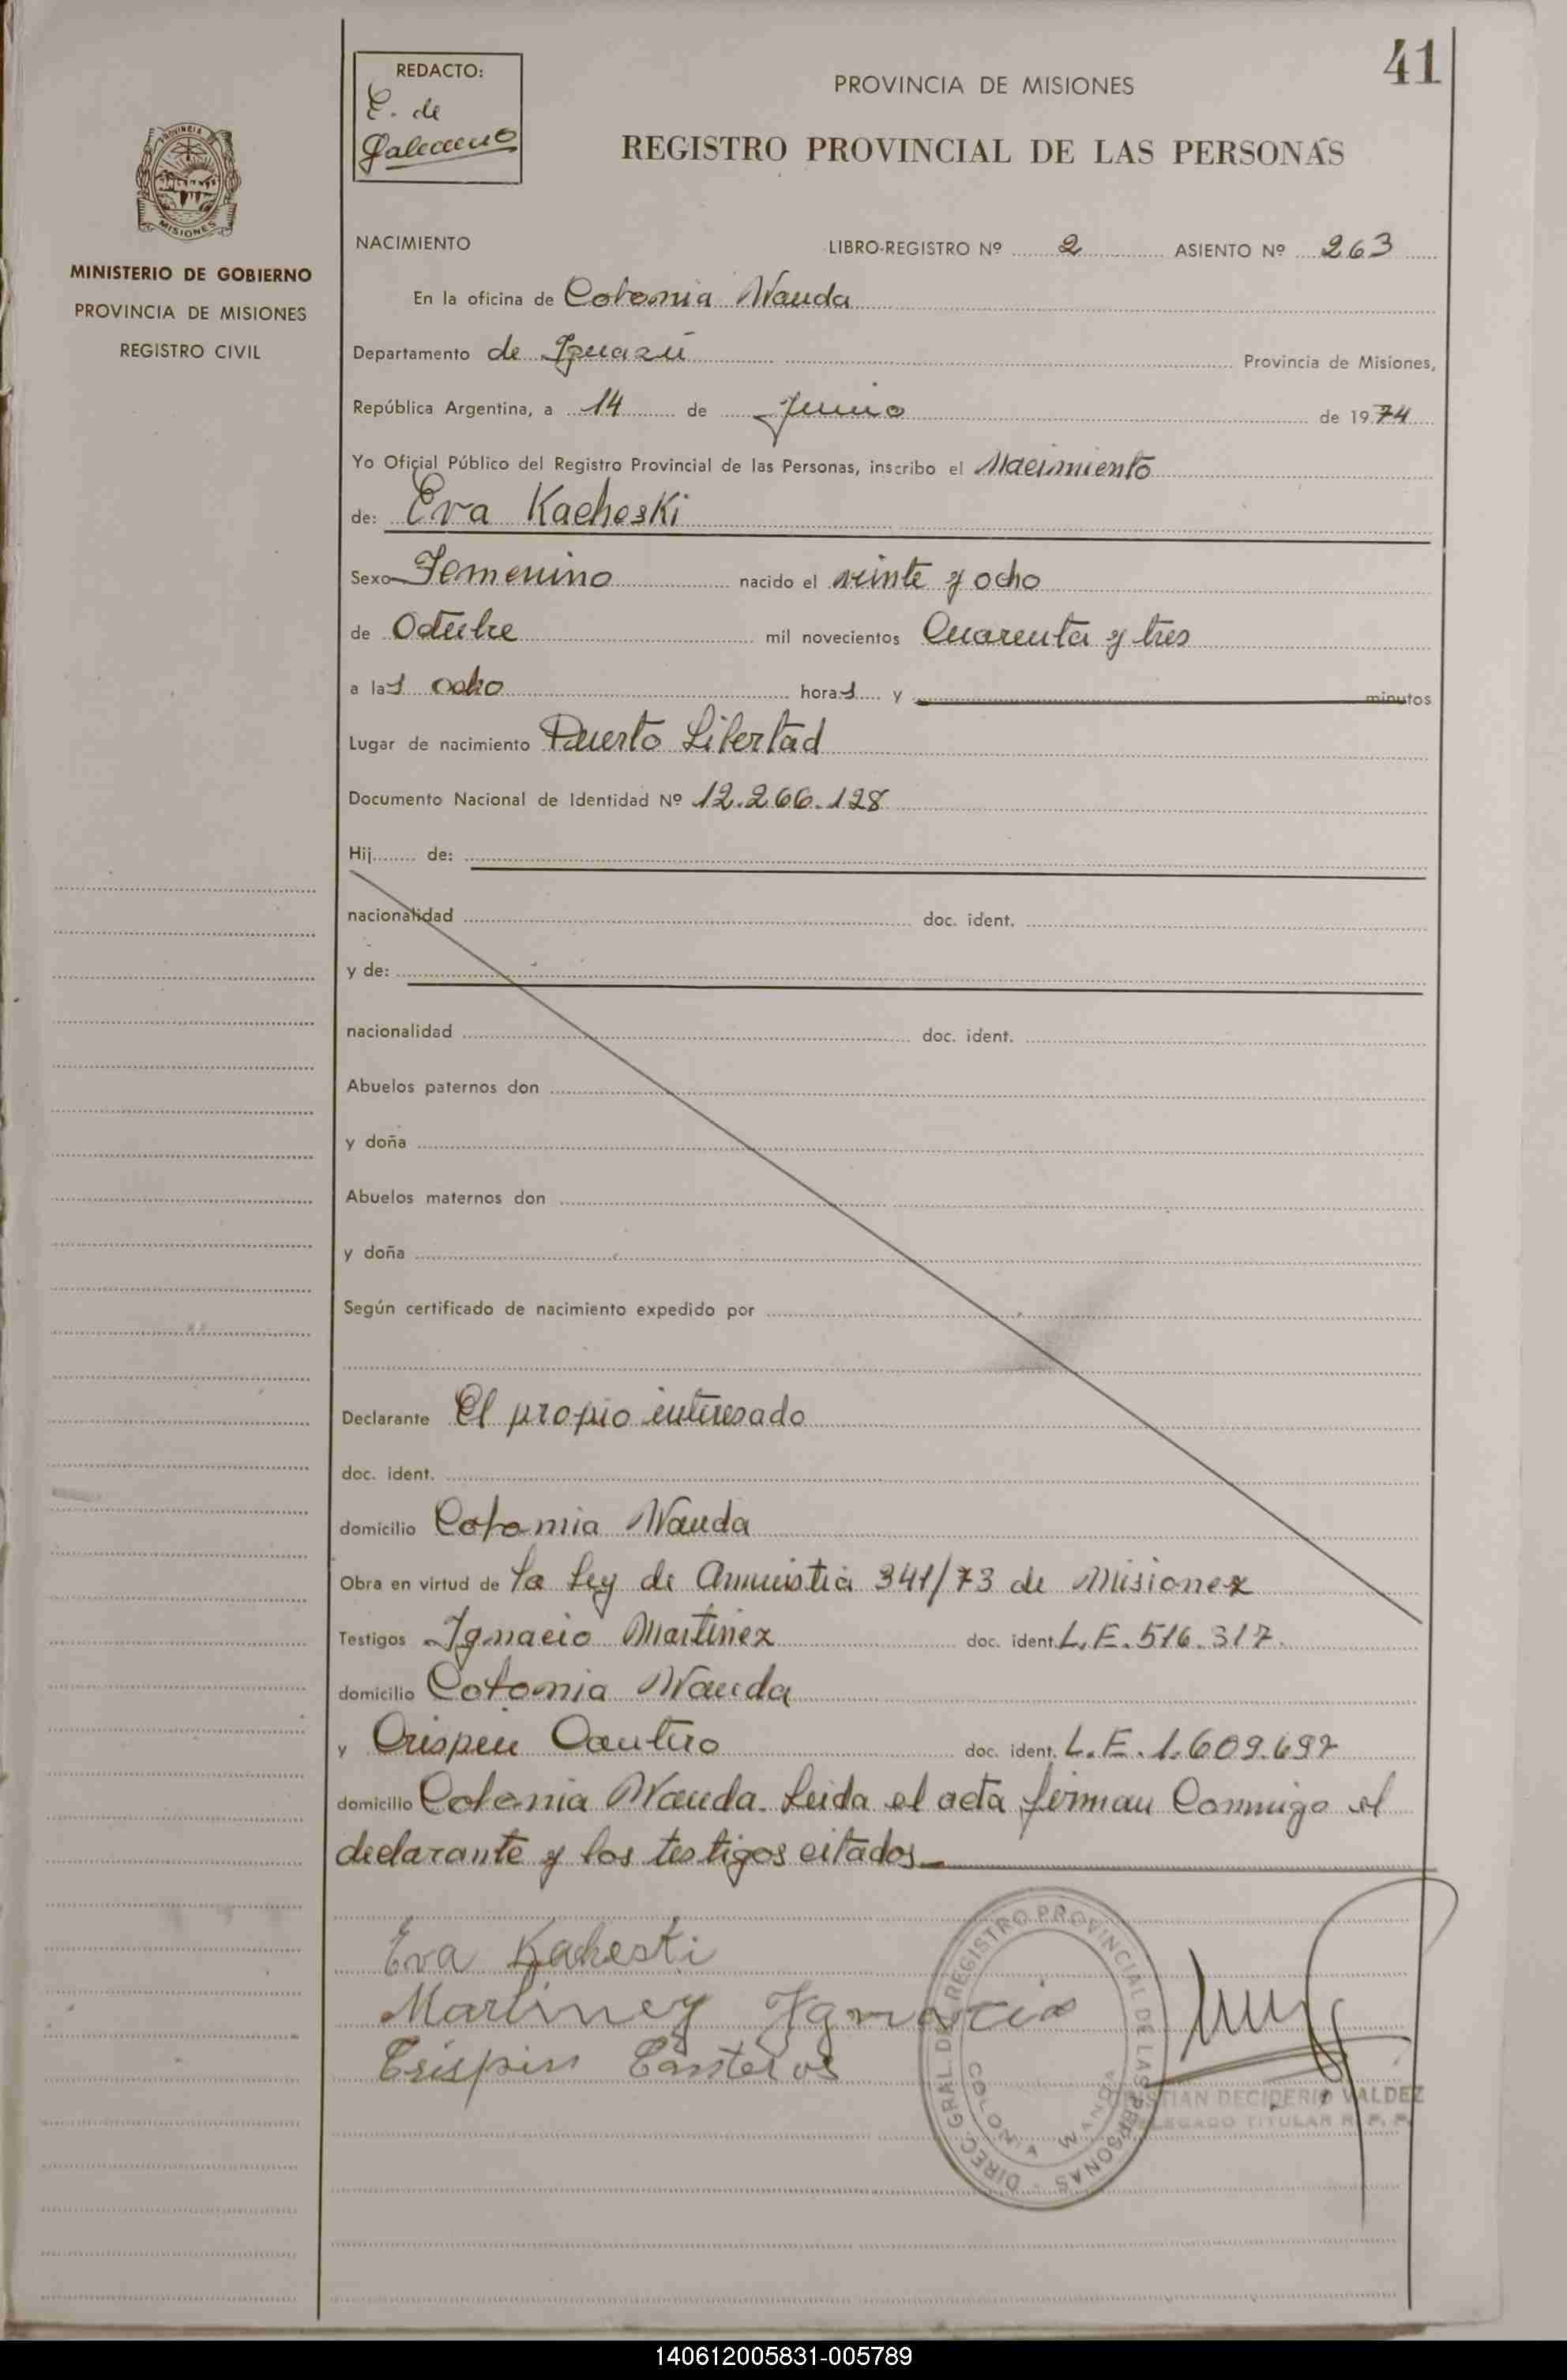 41
REDACTO:
E. de
Galeano
PROVINCIA DE MISIONES
REGISTRO PROVINCIAL DE LAS PERSONAS
PROVINCIA DE
MISIONES
MINISTERIO DE GOBIERNO
PROVINCIA DE MISIONES
REGISTRO CIVIL
NACIMIENTO LIBRO-REGISTRO Nº 2 ASIENTO Nº 263
En la oficina de Colonia Wanda
Departamento de Iguazú Provincia de Misiones,
República Argentina, a 14 de Junio de 1974
Yo Oficial Público del Registro Provincial de las Personas, inscribo el Nacimiento
de: Eva Kacheski
Sexo Femenino nacido el veinte y ocho
de Octubre mil novecientos Cuarenta y tres
a las ocho horas y minutos
Lugar de nacimiento Puerto Libertad
Documento Nacional de Identidad Nº 12.266.128
Hij de:
nacionalidad doc. ident.
y de:
nacionalidad doc. ident.
Abuelos paternos don
y doña
Abuelos maternos don
y doña
Según certificado de nacimiento expedido por
Declarante El propio interesado
doc. ident.
domicilio Colonia Wanda
Obra en virtud de la Ley de Amnistia 341/73 de Misiones
Testigos Ignacio Martinez doc. ident. L.E. 516.317.
domicilio Colonia Wanda
y Crispin Cantero doc. ident. L.E. 1.609.697
domicilio Colonia Wanda. Leida el acta firman Conmigo el
declarante y los testigos citados
Eva Kacheski
Martinez Ignacio
Crispin Canteros
DIREC. GRAL. DE REGISTRO PROVINCIAL DE LAS PERSONAS
COLONIA WANDA
DECIDERIO VALDEZ
DELEGADO TITULAR R. P. P.
140612005831-005789